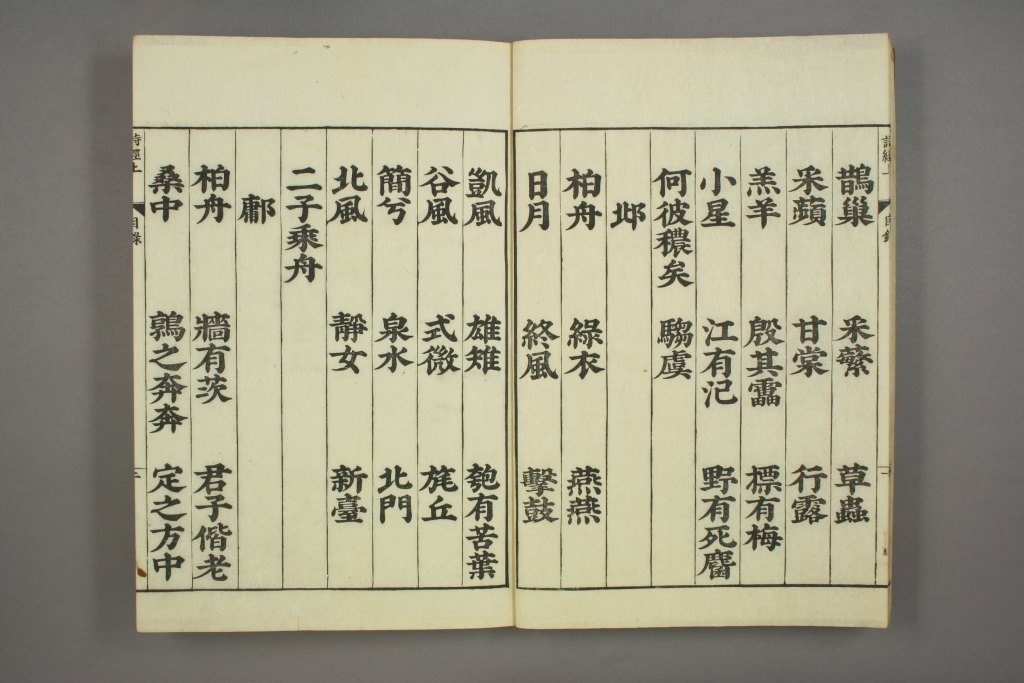 鵲巢 采蘩 草蟲
采蘋 甘棠 行露
羔羊 殷其靁 摽有梅
小星 江有汜 野有死麕
何彼穠矣 騶虞
邶
柏舟 綠衣 燕燕
日月 終風 擊鼓
凱風 雄雉 匏有苦葉
谷風 式微 旄丘
簡兮 泉水 北門
北風 靜女 新臺
二子乘舟
鄘
柏舟 牆有茨 君子偕老
桑中 鶉之奔奔 定之方中
詩經上 目錄 二